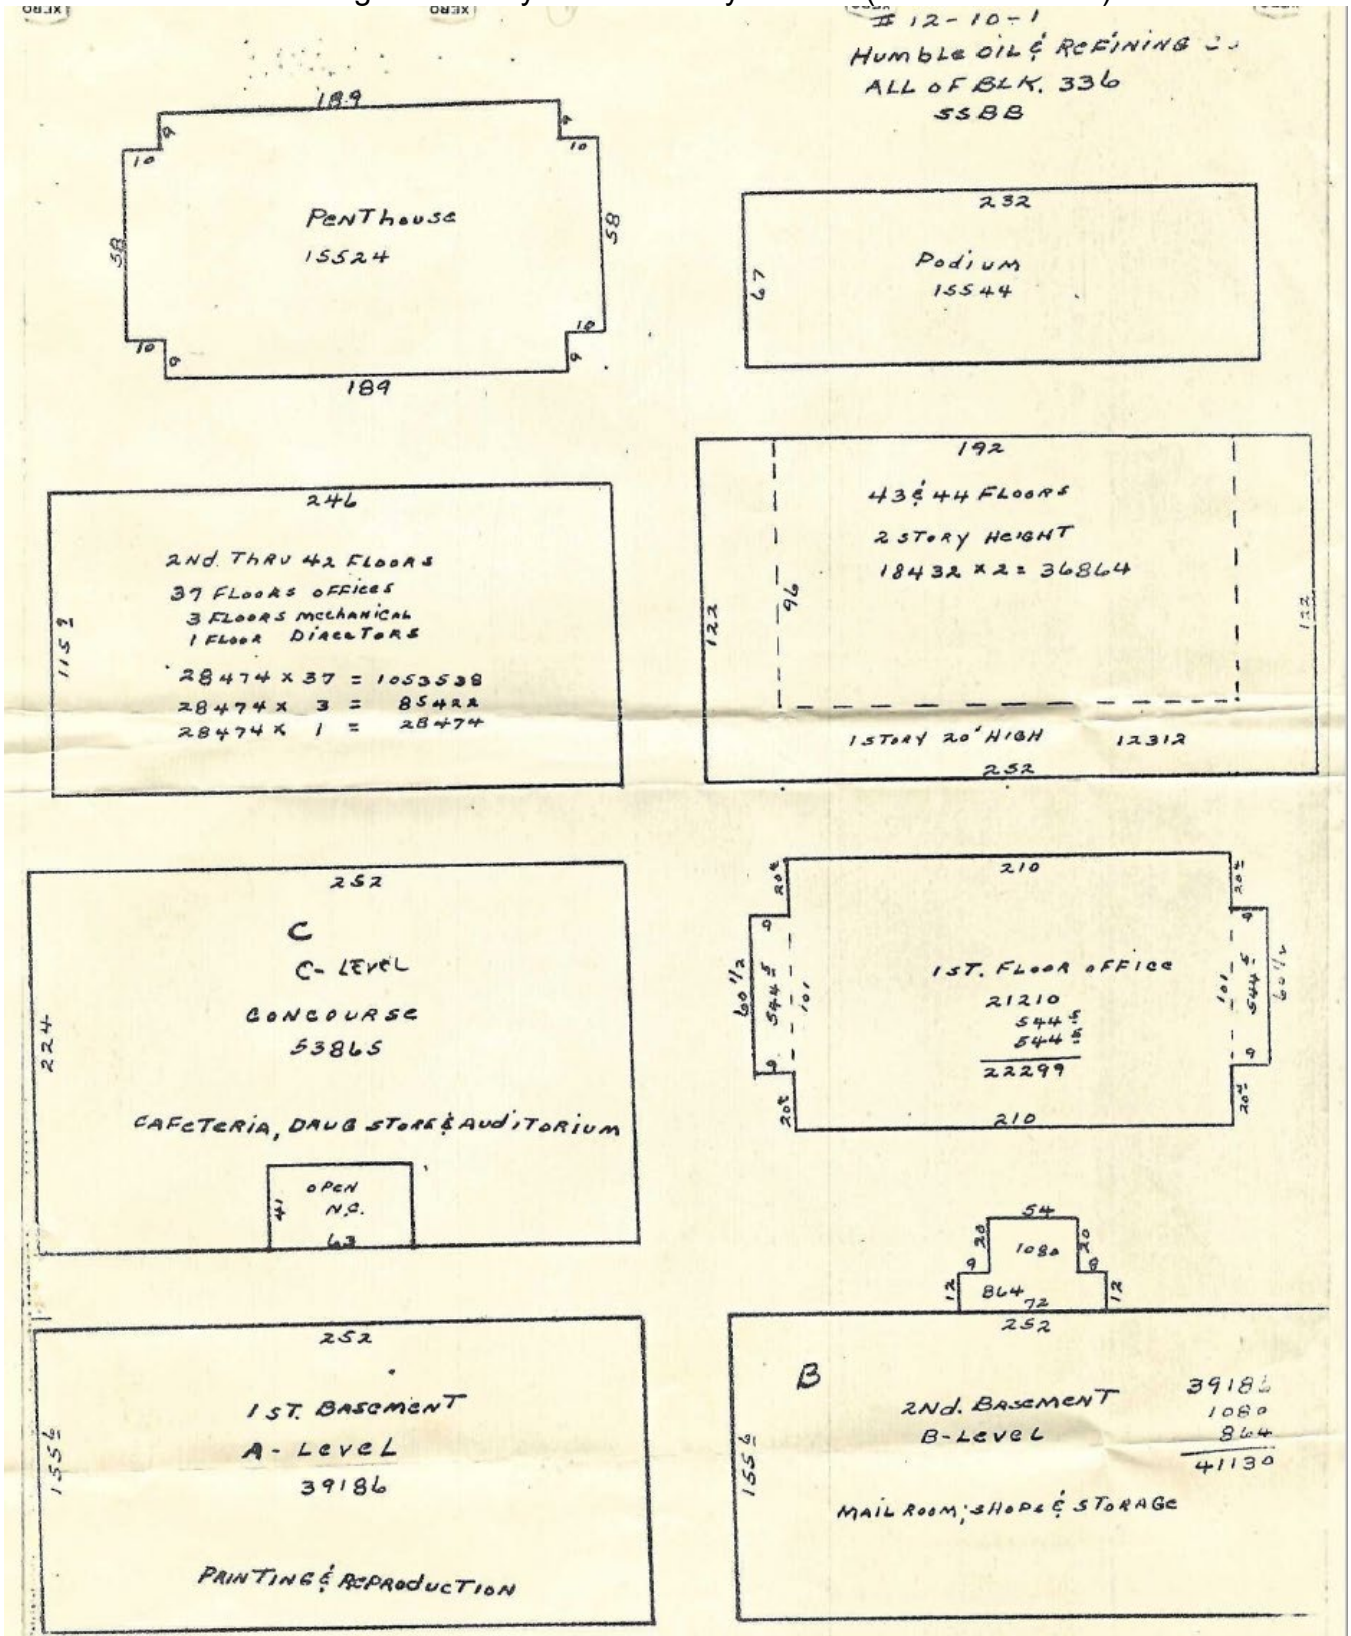 XERO
XERO
XERO
# 12-10-1
Humble OIL & REFINING
ALL OF BLK. 336
SSBB
189
9
10
9
10
Penthouse
15524
58
58
10
9
10
9
189
232
Podium
15544
67
246
2ND. THRU 42 FLOORS
37 FLOORS OFFICES
3 FLOORS MECHANICAL
1 FLOOR DIRECTORS
28474 x 37 = 1053538
28474 x 3 = 85422
28474 x 1 = 28474
192
43 & 44 FLOORS
2 STORY HEIGHT
18432 x 2 = 36864
96
122
122
1 STORY 20' HIGH 12312
252
252
C
C- LEVEL
CONCOURSE
53865
224
CAFETERIA, DRUG STORE & AUDITORIUM
OPEN
N.C.
41
63
210
9
9
60 1/2
544 5
101
1ST. FLOOR OFFICE
21210
544 5
544 5
22299
101
544 5
60 1/2
9
9
210
54
20
20
1080
9
12
864
72
12
252
1ST. BASEMENT
A - LEVEL
39186
155 6
PRINTING & REPRODUCTION
252
B
2ND. BASEMENT
B-LEVEL
39186
1080
864
41130
155 6
MAIL ROOM, SHOPS & STORAGE